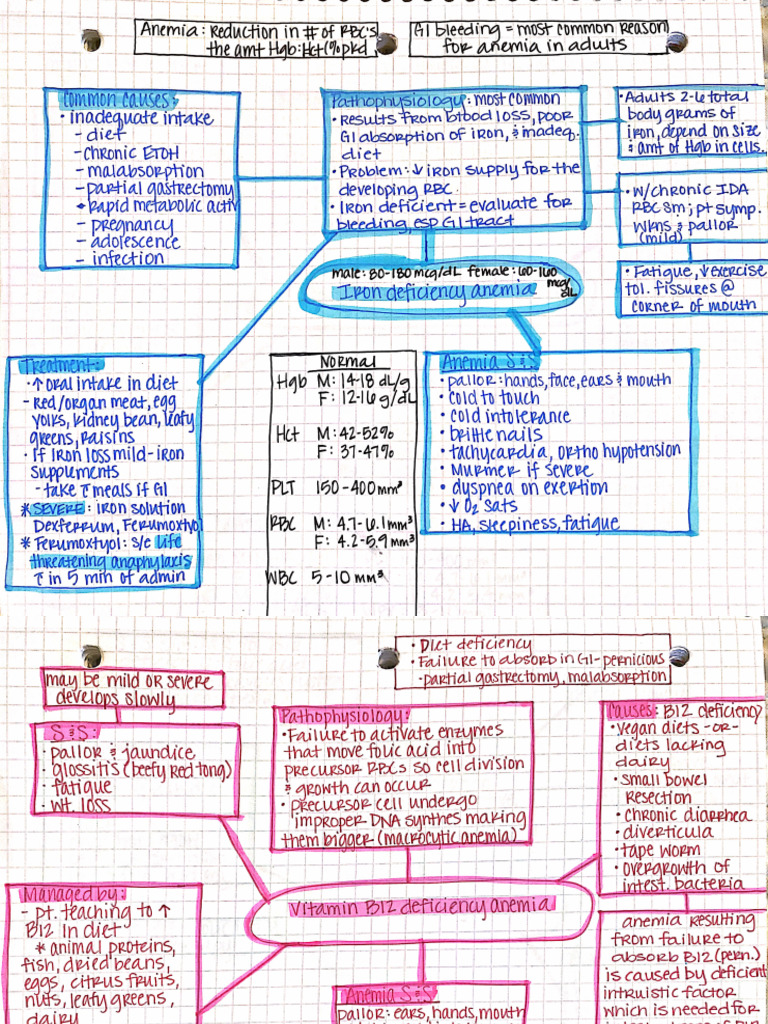 Anemia: Reduction in # of RBC's
the amt Hgb: Hct (% pkd
GI bleeding = most common reason
for anemia in adults
Common causes:
• inadequate intake
- diet
- chronic ETOH
- malabsorption
- partial gastrectomy
• Rapid metabolic activ
- pregnancy
- adolescence
- infection
Pathophysiology: most common
• Results from blood loss, poor
GI absorption of iron, & inadeq.
diet
• Problem: ↓ iron supply for the
developing RBC.
• Iron deficient = evaluate for
bleeding, esp GI tract
• Adults 2-6 total
body grams of
iron, depend on size
& amt of Hgb in cells.
• w/chronic IDA
RBC sm; pt symp.
wkns & pallor
(mild)
• Fatigue, ↓ exercise
tol. fissures @
corner of mouth
male: 80-180 mcg/dL female: 60-160
mcg/
dL
Iron deficiency anemia
Treatment:
• ↑ oral intake in diet
- Red/organ meat, egg
yolks, kidney bean, leafy
greens, raisins
• If iron loss mild - iron
supplements
- take ↑ meals if GI
* SEVERE: iron solution
Dexferrum, Ferumoxtyol
* Ferumoxtyol: s/c life
threatening anaphylaxis
↑ in 5 min of admin
Normal
Hgb M: 14-18 dL/g
F: 12-16 g/dL
Hct M: 42-52%
F: 37-47%
PLT 150-400mm³
RBC M: 4.7-6.1mm³
F: 4.2-5.9 mm³
WBC 5-10 mm³
Anemia S&S
• pallor: hands, face, ears & mouth
• cold to touch
• cold intolerance
• brittle nails
• tachycardia, ortho hypotension
• Murmer if severe
• dyspnea on exertion
• ↓ O₂ sats
• HA, sleepiness, fatigue
• Diet deficiency
• Failure to absorb in GI - pernicious
• partial gastrectomy, malabsorption
may be mild or severe
develops slowly
S & S:
• pallor & jaundice
• glossitis (beefy red tong)
• fatigue
• wt. loss
Pathophysiology:
• Failure to activate enzymes
that move folic acid into
precursor RBCs so cell division
& growth can occur
• precursor cell undergo
improper DNA synthes making
them bigger (macrocytic anemia)
Causes: B12 deficiency
• vegan diets -or-
diets lacking
dairy
• small bowel
Resection
• chronic diarrhea
• diverticula
• tape worm
• overgrowth of
intest. bacteria
Vitamin B12 deficiency anemia
Managed by:
- pt. teaching to ↑
B12 in diet
* animal proteins,
fish, dried beans,
eggs, citrus fruits,
nuts, leafy greens,
dairy
anemia resulting
from failure to
absorb B12 (pern.)
is caused by deficient
intruistic factor
which is needed for
Anemia S&S
pallor: ears, hands, mouth